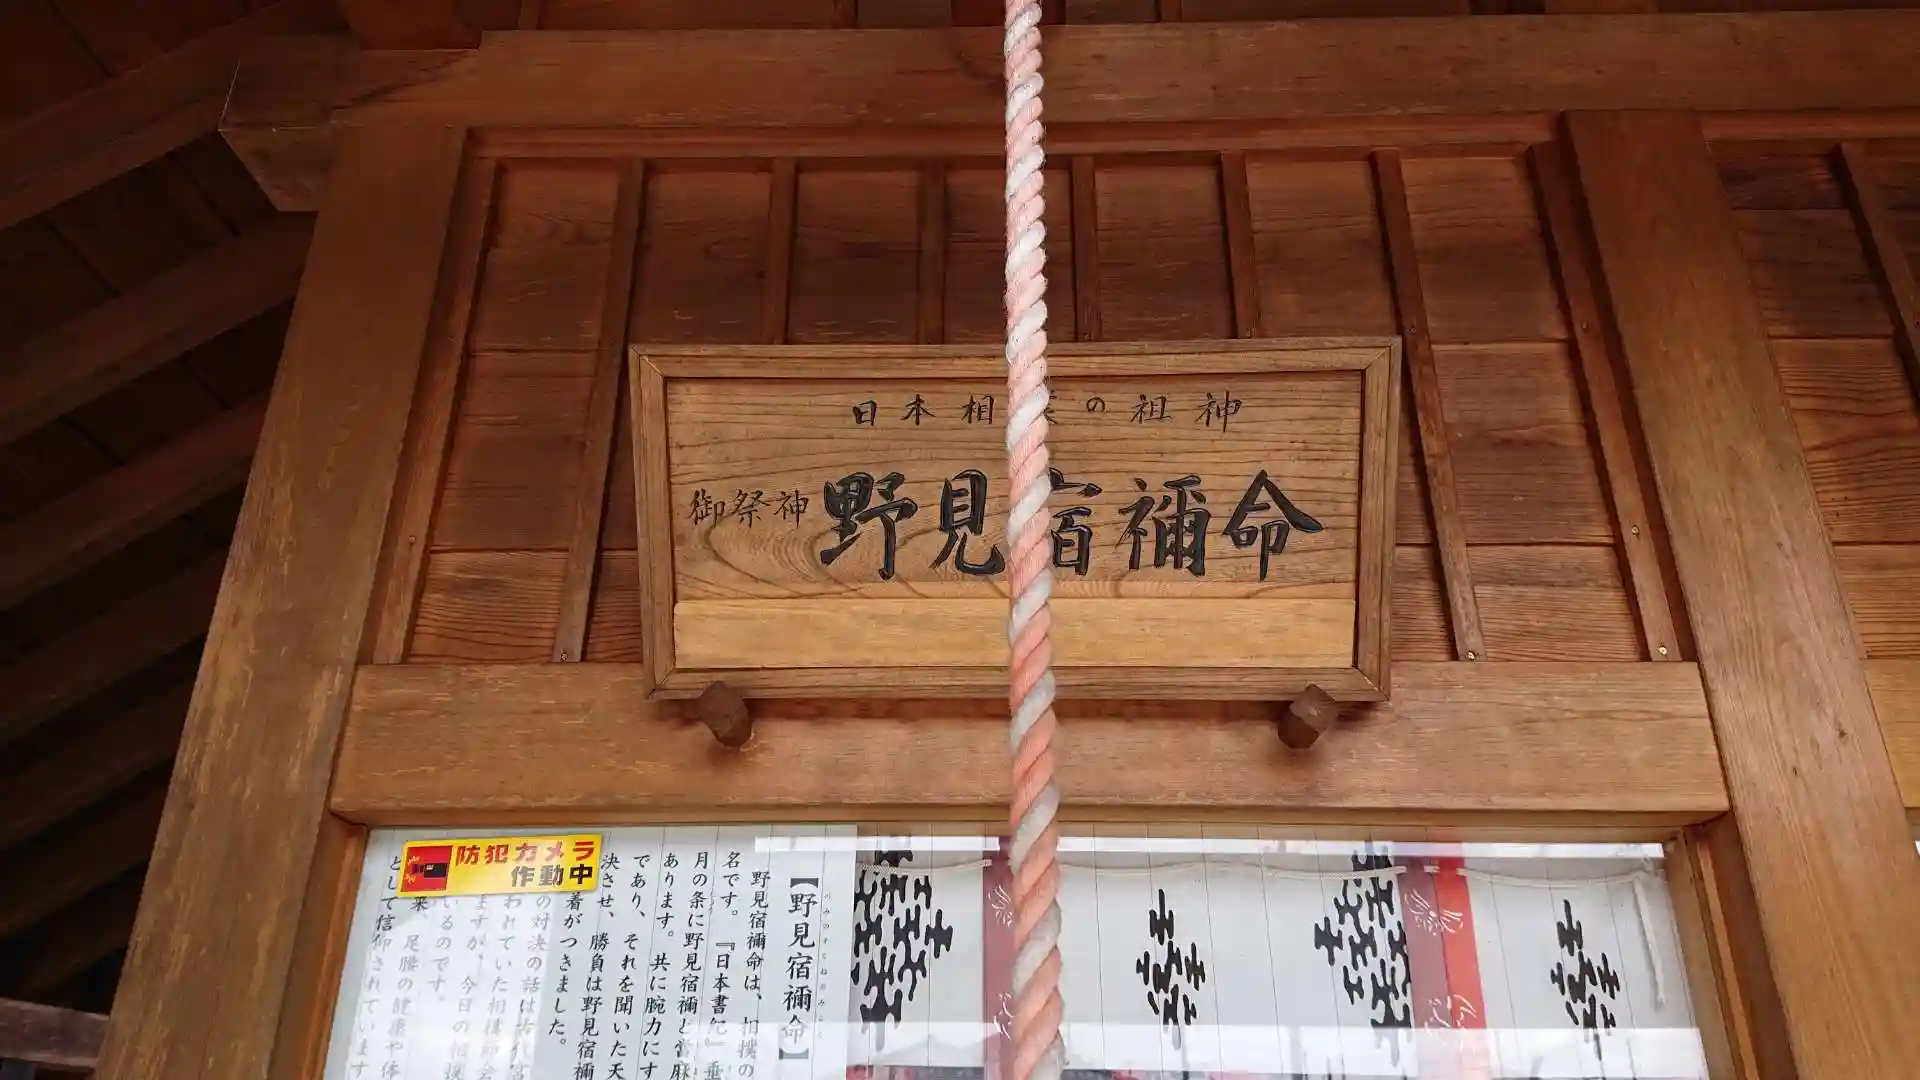 日本相の祖神
御祭神 野見宿禰命
防犯カメラ
作動中
【野見宿禰命】
のみのすくねのみこと
野見宿禰命は、相撲の
名です。『日本書紀』垂
月の条に野見宿禰と當麻
あります。共に腕力にす
であり、それを聞いた天
決させ、勝負は野見宿禰
着がつきました。
の対決の話は古代宮
われていた相撲節会
ますが、今日の相撲
いるのです。
来、足腰の健康や体
として信仰されています